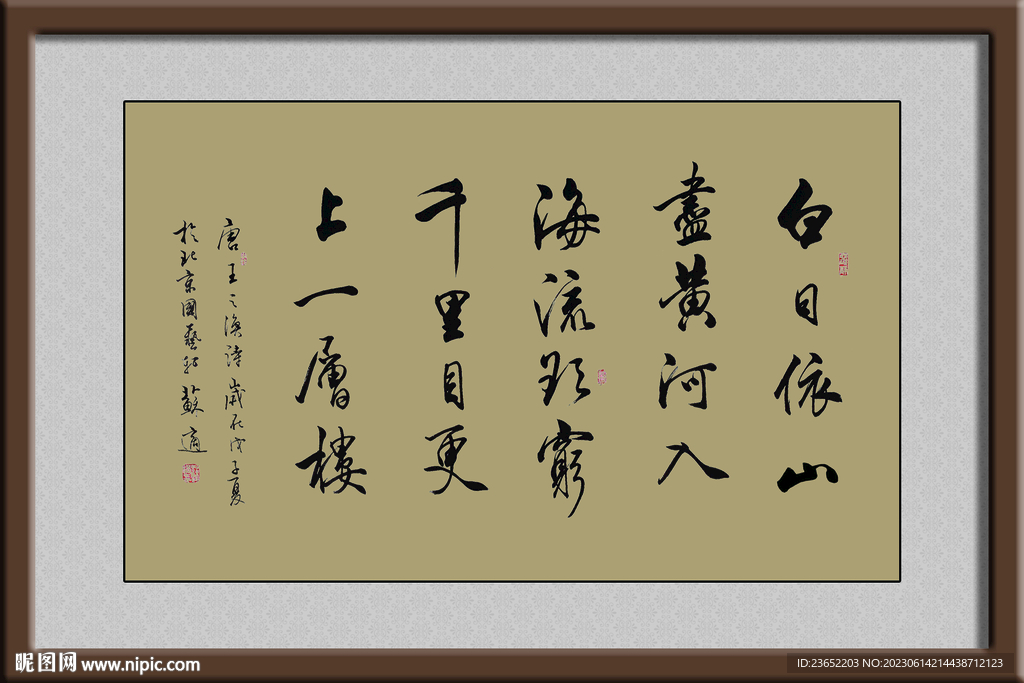 白日依山
盡黄河入
海流欲窮
千里目更
上一層樓
唐王之渙詩歲在戊子夏
於北京國藝 蘇適
昵图网 www.nipic.com
ID:23652203 NO:20230614214438712123